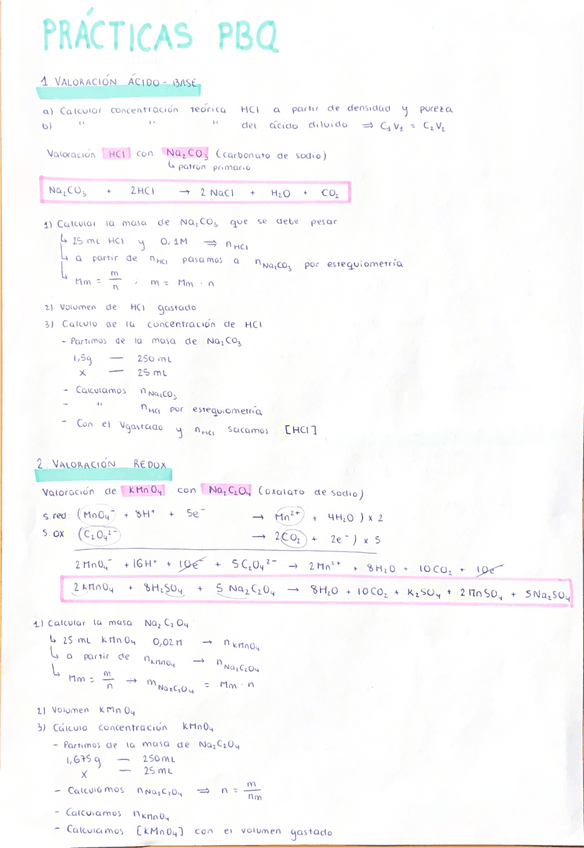 PRÁCTICAS PBQ
1 VALORACIÓN ÁCIDO-BASE
a) Calcular concentración teórica HCl a partir de densidad y pureza
b) " " " del ácido diluido ⇒ C₁V₁ = C₂V₂
Valoración HCl con Na₂CO₃ (carbonato de sodio)
↳ patrón primario
Na₂CO₃ + 2HCl → 2 NaCl + H₂O + CO₂
1) Calcular la masa de Na₂CO₃ que se debe pesar
↳ 25 mL HCl y 0,1M ⇒ nHCl
↳ a partir de nHCl pasamos a nNa₂CO₃ por estequiometría
↳ Mm = m/n ; m = Mm · n
2) Volumen de HCl gastado
3) Calculo de la concentración de HCl
- Partimos de la masa de Na₂CO₃
1,5g — 250 mL
x — 25 mL
- Calculamos nNa₂CO₃
- " nHCl por estequiometría
- Con el Vgastado y nHCl sacamos [HCl]
2 VALORACIÓN REDOX
Valoración de KMnO₄ con Na₂C₂O₄ (oxalato de sodio)
S.red (MnO₄⁻ + 8H⁺ + 5e⁻ → Mn²⁺ + 4H₂O) x 2
S.OX (C₂O₄²⁻ → 2CO₂ + 2e⁻) x 5
2 MnO₄⁻ + 16H⁺ + 10e⁻ + 5C₂O₄²⁻ → 2Mn²⁺ + 8H₂O + 10CO₂ + 10e⁻
2 KMnO₄ + 8H₂SO₄ + 5 Na₂C₂O₄ → 8H₂O + 10CO₂ + K₂SO₄ + 2MnSO₄ + 5Na₂SO₄
1) Calcular la masa Na₂C₂O₄
↳ 25 mL KMnO₄ 0,02M → nKMnO₄
↳ a partir de nKMnO₄ → nNa₂C₂O₄
↳ Mm = m/n → mNa₂C₂O₄ = Mm · n
2) Volumen KMnO₄
3) Cálculo concentración KMnO₄
- Partimos de la masa de Na₂C₂O₄
1,675g — 250mL
x — 25 mL
- Calculamos nNa₂C₂O₄ ⇒ n = m/nm
- Calculamos nKMnO₄
- Calculamos [KMnO₄] con el volumen gastado